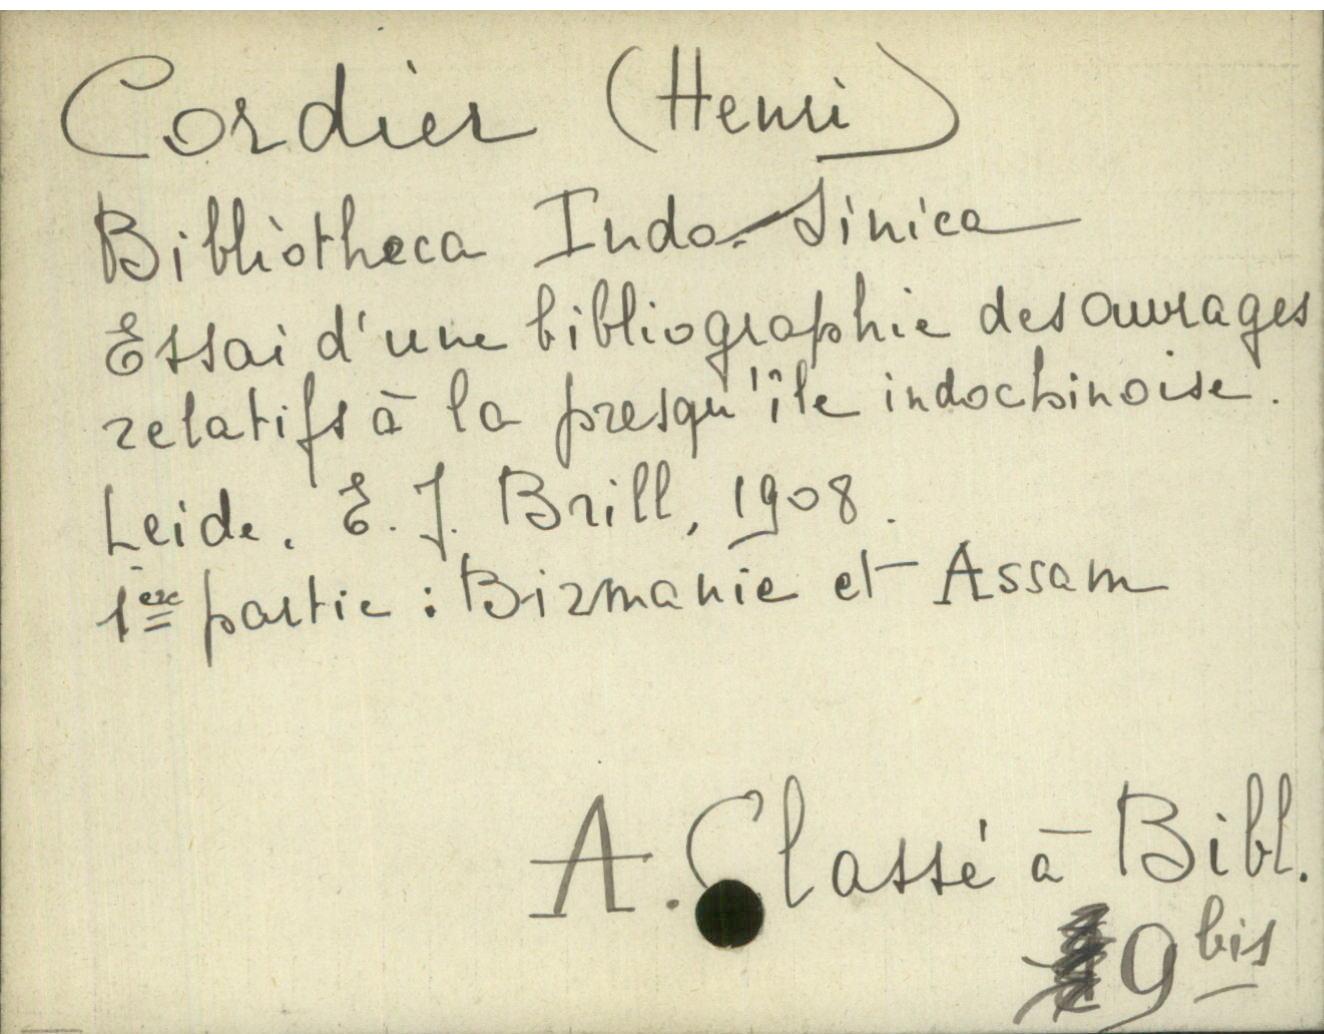 Cordier (Henri)
Bibliotheca Indo-Sinica
Essai d'une bibliographie des ouvrages
relatifs à la presqu'île indochinoise.
Leide, E. J. Brill, 1908.
1ère partie : Birmanie et Assam
A. Classé à Bibl.
9 bis